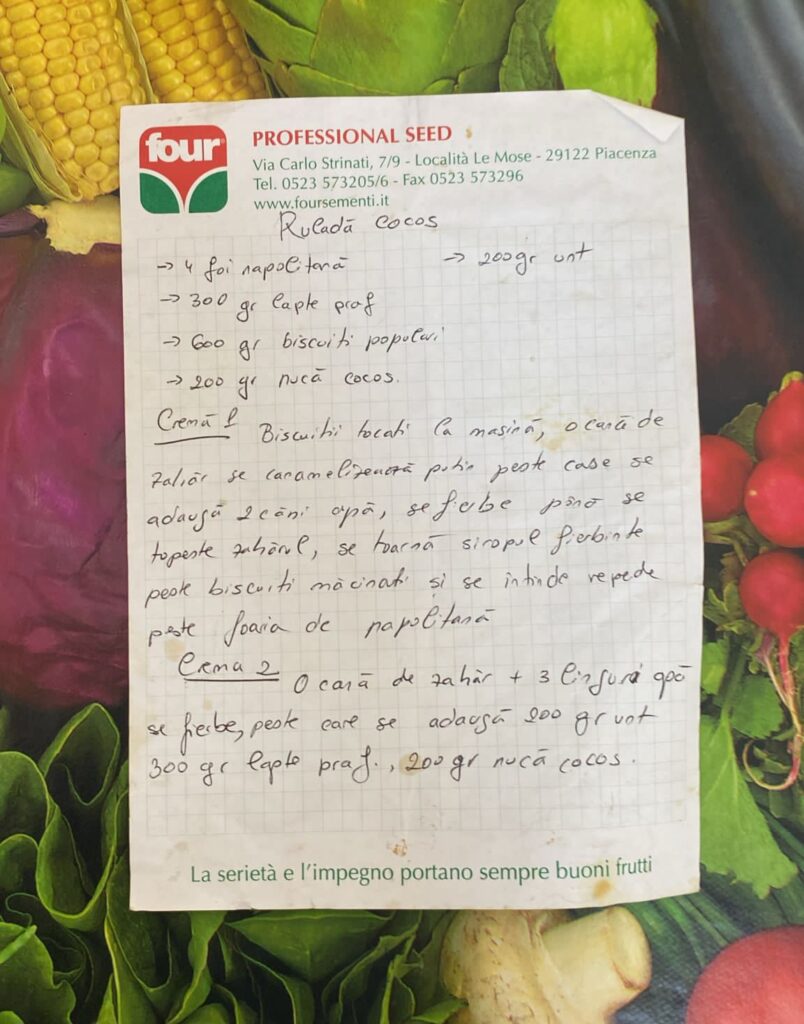 four
PROFESSIONAL SEED
Via Carlo Strinati, 7/9 - Località Le Mose - 29122 Piacenza
Tel. 0523 573205/6 - Fax 0523 573296
www.foursementi.it
Ruladă cocos
→ 4 foi napolitană → 200 gr unt
→ 300 gr lapte praf
→ 600 gr biscuiti populari
→ 200 gr nucă cocos.
Cremă 1 Biscuitii tocati la masină, o cană de
zahăr se caramelizează putin peste case se
adaugă 2 căni apă, se fierbe pînă se
topeste zahărul, se toarnă siropul fierbinte
peste biscuiti măcinati și se intinde repede
peste foaia de napolitană
Crema 2 O cană de zahăr + 3 linguri apă
se fierbe, peste care se adaugă 200 gr unt
300 gr lapte praf., 200 gr nucă cocos.
La serietà e l'impegno portano sempre buoni frutti